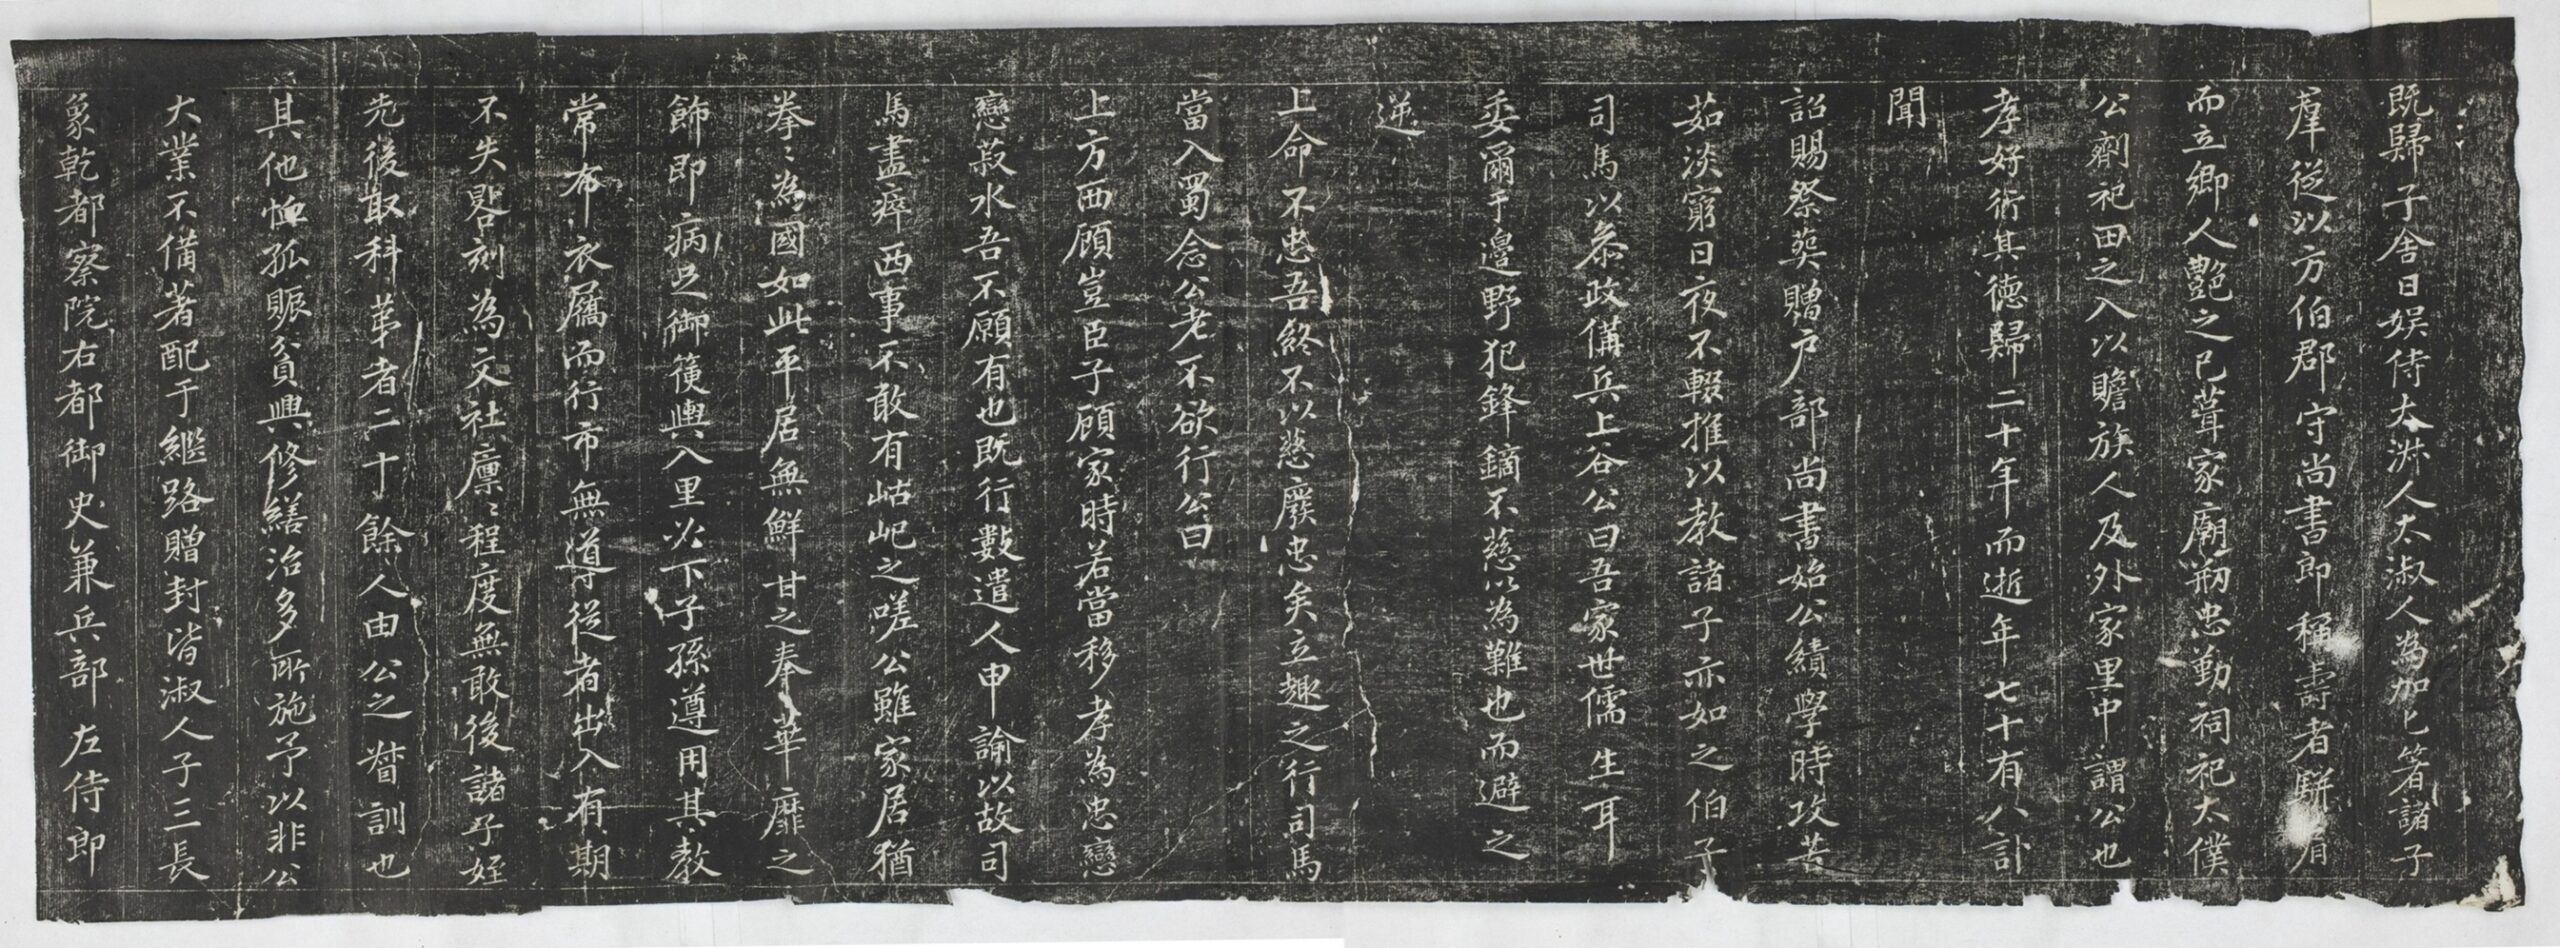 既歸子舍日娛侍太淑人太淑人為加匕箸諸子
羣從以方伯郡守尚書郎稱壽者駢肩
而立鄉人艷之已葺家廟剏忠勤祠祀太僕
公劑祀田之入以贍族人及外家里中謂公也
孝好術其德歸二十年而逝年七十有八訃
聞
詔賜祭葬贈戶部尚書始公績學時攻苦
茹淡窮日夜不輟推以教諸子亦如之伯子
司馬以叅政備兵上谷公曰吾家世儒生耳
委爾于邊野犯鋒鏑不慈以為難也而避之
逆
上命不忠吾終不以慈廢忠矣立趣之行司馬
當入蜀念公老不欲行公曰
上方西顧豈臣子顧家時若當移孝為忠戀
戀菽水吾不願有也既行數遣人申諭以故司
馬盡瘁西事不敢有岵屺之嗟公雖家居猶
拳〻為國如此平居無鮮甘之奉華靡之
飾即病足御篋輿入里必下子孫遵用其教
常布衣屩而行市無導從者出入有期
不失晷刻為文社廩〻程度無敢後諸子姪
先後取科第者二十餘人由公之督訓也
其他恤孤賑貧興修繕治多所施予以非公
大業不備著配于繼路贈封皆淑人子三長
象乾都察院右都御史兼兵部左侍郎